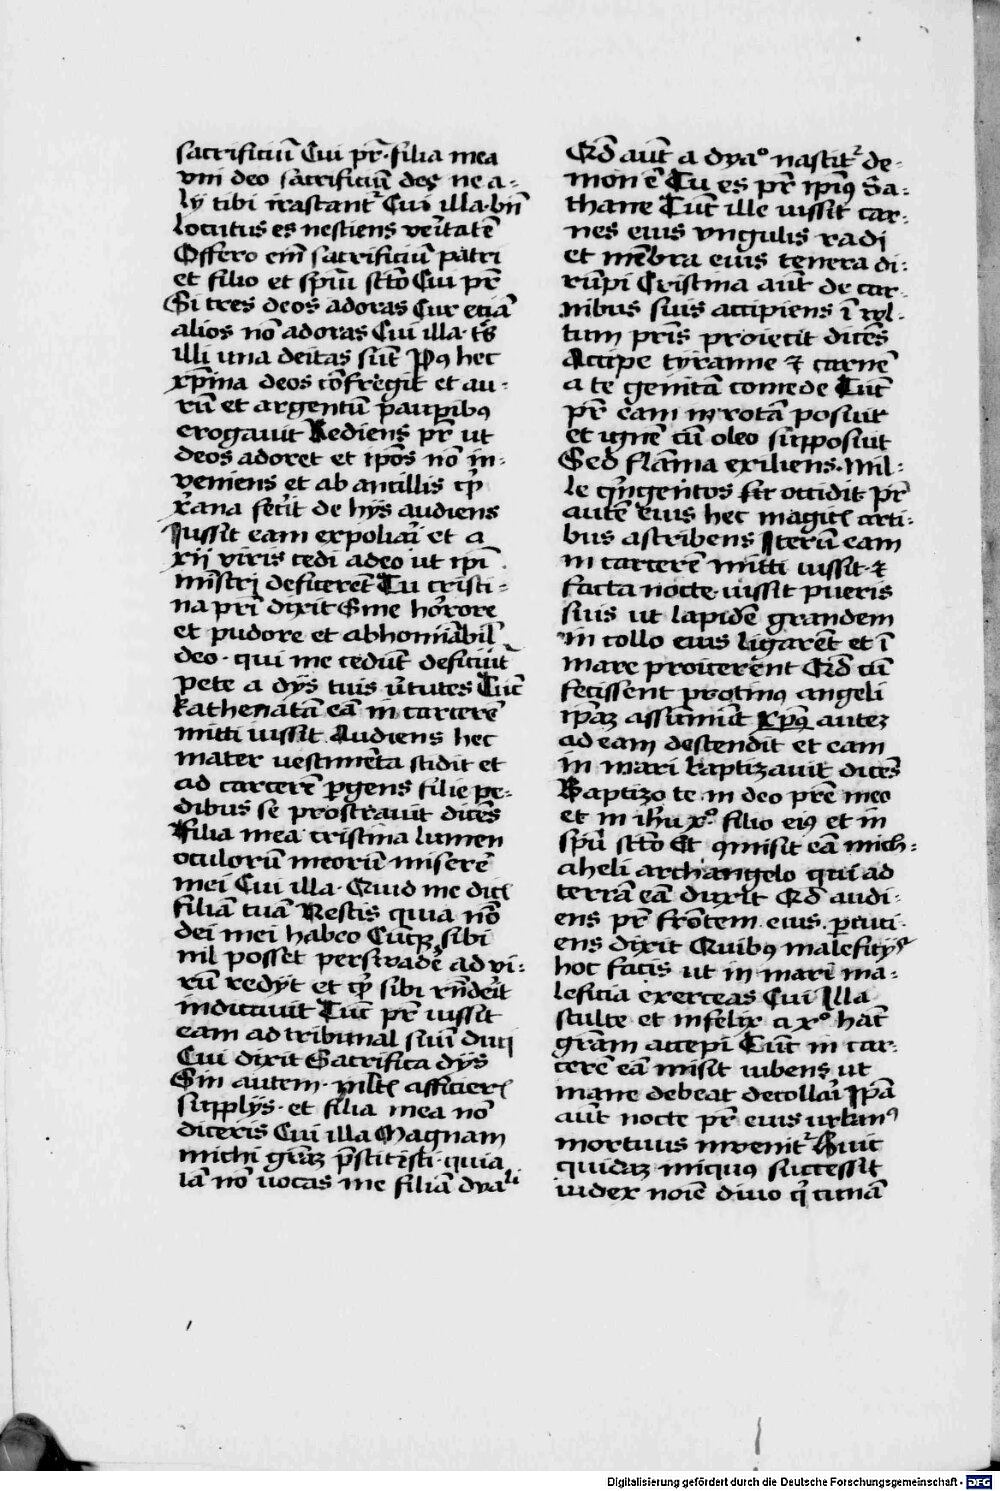 sacrificiū Cui pr̄ · filia mea
vni deo sacrificiū des ne a-
ly tibi irascant᷑ Cui illa · bn̄
locutus es nesciens veritatē
Offero em̄ sacrificiū patri
et filio et spūi sc̄to Cui pr̄
Si tres deos adoras Cur eciā
alios nō adoras Cui illa · ts̄
illi una deitas sūt Pꝰ hec
xp̄ina deos cōfregit et au-
rū et argentū paup̄ibꝰ
erogauit Rediens pr̄ ut
deos adoret et ip̄os nō in-
veniens et ab ancillis qd̓
x̓ana fec̓it de hijs audiens
Jussit eam expoliar̓i et a
xij viris cedi adeo ut ip̄i
mīstri deficerēt Tū cristi-
na pr̄i dixit Sine ho̓rore
et pudore et abhomīabil̄
deo · qui me cedūt deficiūt
pete a dijs tuis v̓tutes Tūc
kathenatā eā in carcerē
mitti iussit Audiens hec
mater uestimēta scidit et
ad carcerē p̱gens filie pe-
dibus se prostrauit dicēs
Filia mea cristina lumen
oculorū meorū miserē
mei Cui illa · Quid me dicꝭ
filiā tuā Nescis quia nō
dei mei habeo Cūqꝫ sibi
nil posset perswadē ad vi-
rū redijt et q̄ sibi rn̄dēit
indicauit Tūc pr̄ iussit
eam ad tribunal suū duci
Cui dixit Sacrifica dijs
Sin autem · mltꝭ afficierꝭ
supplijs · et filia mea nō
diceris Cui illa Magnam
michi grāꝫ p̄stitisti · quia
iā nō uocas me filiā dyaˡⁱ
Qd̄ aūt a dyaᵒ nascit᷑ de-
mon ē Tu es pr̄ ip̄iꝰ Sa-
thane Tūc ille iussit car-
nes eius vngulis radi
et mēbra eius tenera di-
rūpi Cristina aūt de car-
nibus suis accipiens ī vul-
tum pr̄is proiecit dicēs
Accipe tyranne ⁊ carnē
a te genitā comede Tūc
pr̄ eam in rotā posuit
et ignē cū oleo supposuit
Sed flāma exiliens · mil-
le qi̓ngentos fer̄ occidit pr̄
autē eius hec magicꝭ arti-
bus ascribens Iterū eam
in carcerē mitti iussit · ⁊
facta nocte · iussit pueris
suis ut lapidē grandem
in collo eius ligarēt et ī
mare proicerēnt Qd̄ cū
fecissent protinꝰ angeli
ip̄aꝫ assūmūt xp̄c auteꝫ
ad eam descendit et eam
in mari baptizauit dicēs
Baptizo te in deo pr̄e meo
et in ihu xᵒ filio eiꝰ et in
spū sc̄to Et ꝯmisit eā mich-
aheli archangelo qui ad
terrā eā duxit Qd̄ audi-
ens pr̄ frōtem eius · ꝑcuti-
ens dixit Quibꝰ maleficijs
hoc facis ut in mari ma-
leficia exerceas Cui Illa
stulte et infelix a xᵒ hāc
grām accepi Tūc in car-
cerē eā misit iubens ut
mane debeat decollar̓i Ip̄a
aūt nocte pr̄ eius urbanꝰ
mortuus inuenit᷑ Huic
quidaꝫ iniquꝰ successit
iudex noīe diuo q̓ cunā
Digitalisierung gefördert durch die Deutsche Forschungsgemeinschaft - DFG